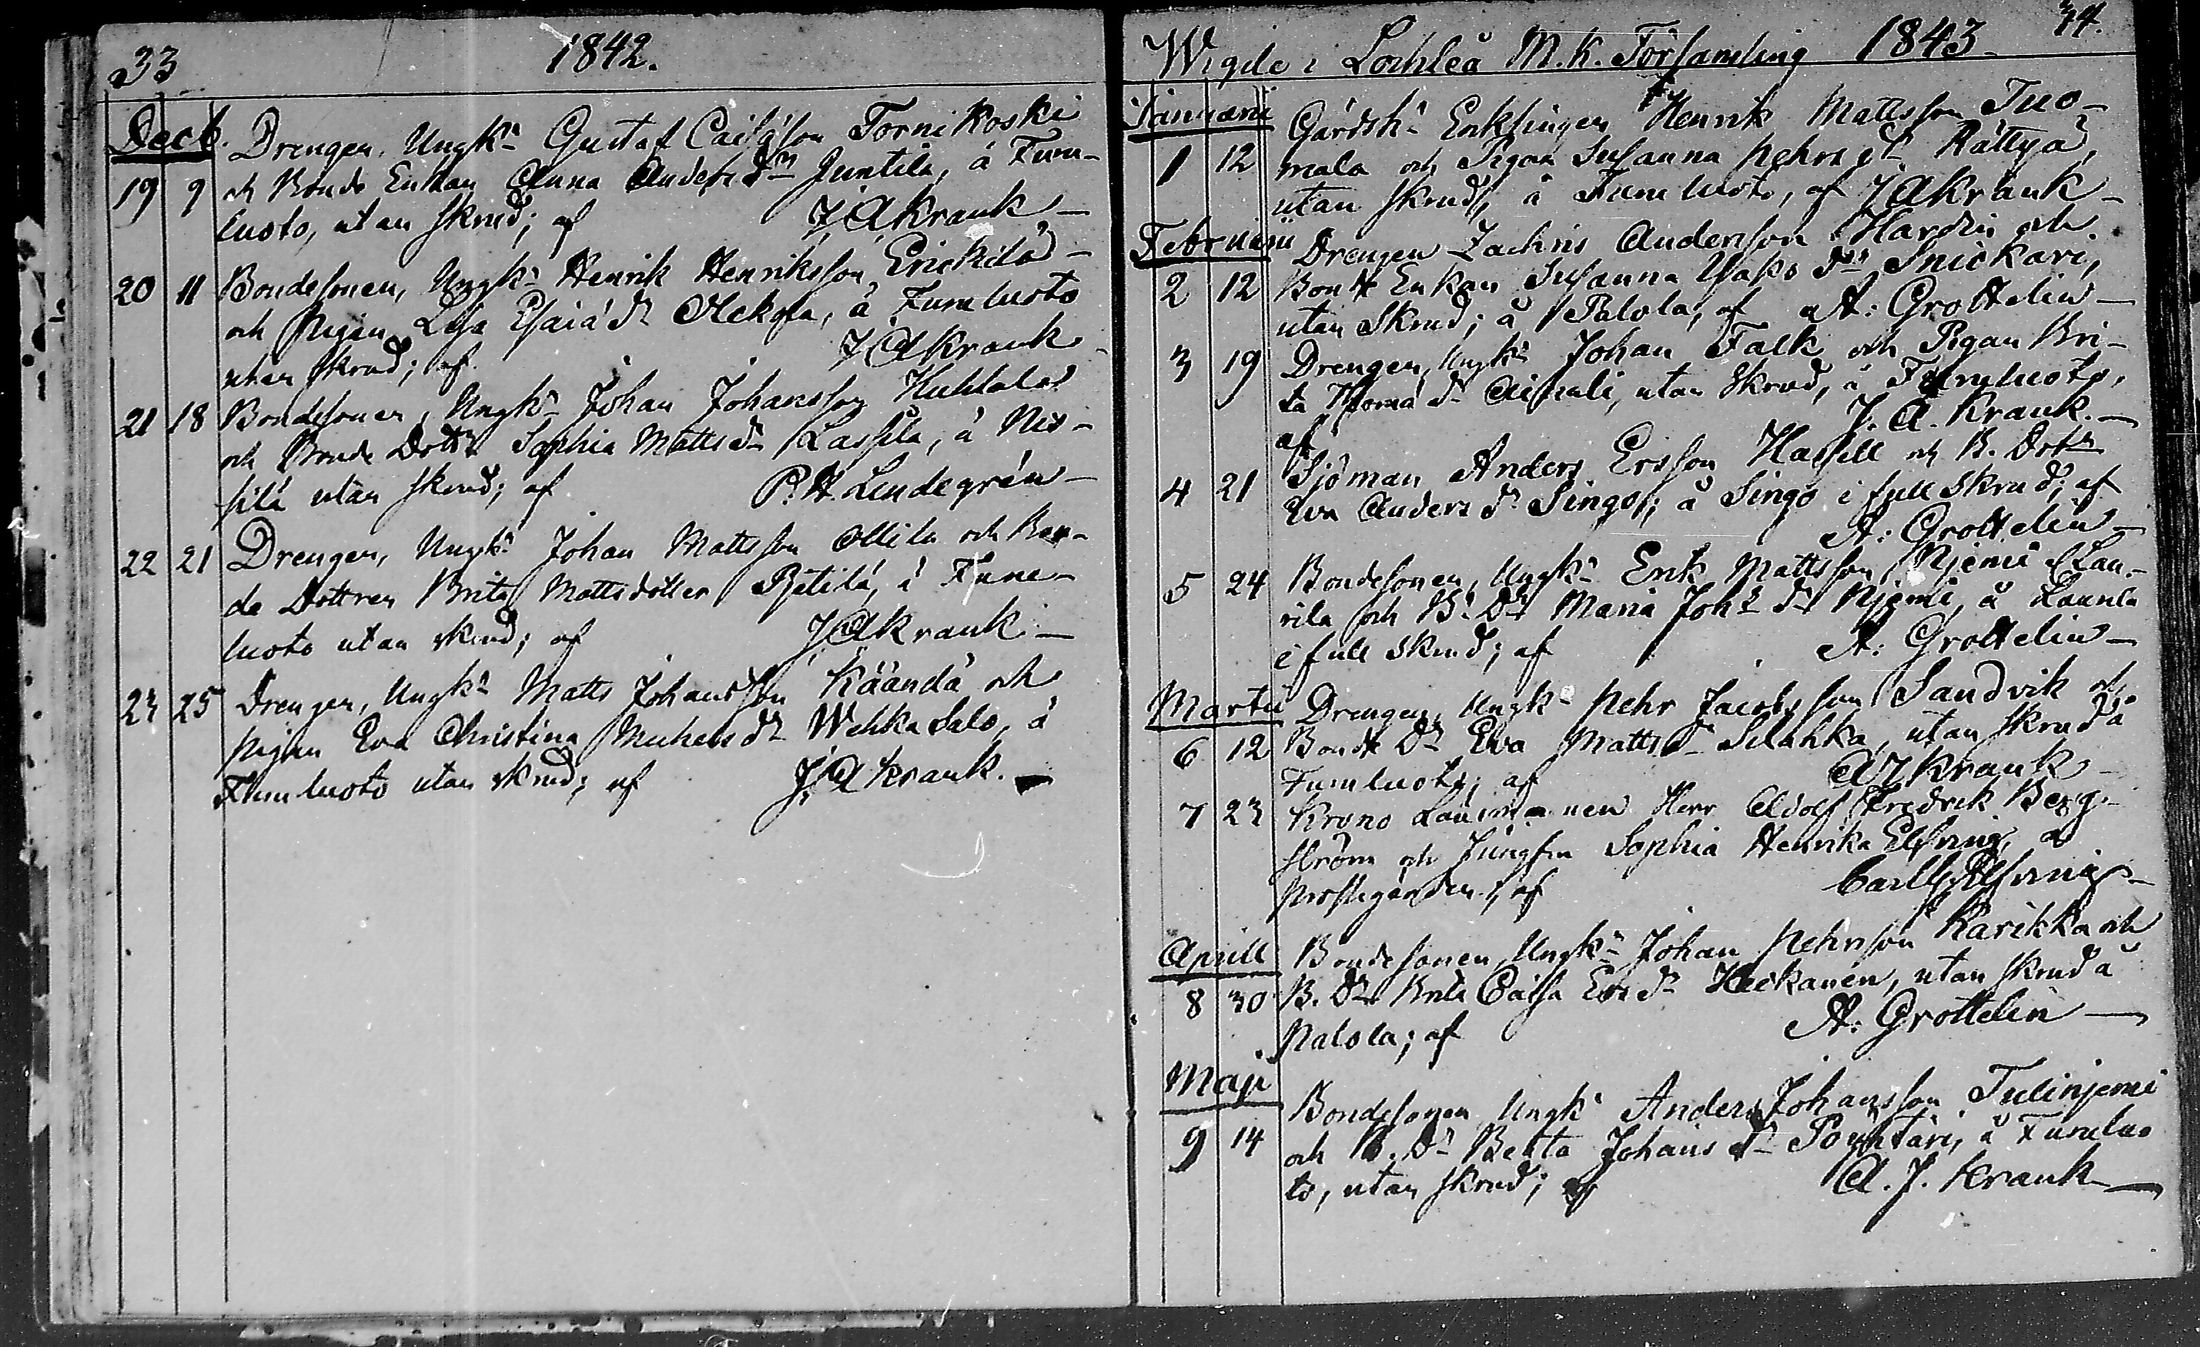 33
1842.
Decb.
Drengen, Ungk:n Gustaf Caisason Tornikoski
19 9 och Bonde Enkan Anna Anders Dr Juntila, å Fum-
luoto, utan skrud; af J A Krank
20 11 Bondesonen, Ungk:n Henrik Henriksson Erickilä
och Pigan Lisa Esaiæ Dr å Fumluoto
utan skrud; af J A Krank
21 18 Bondesonen, Ungk:n Johan Johansson Huhtala
och Bonde Dottr Sophia Matts Dr Lassila, å Nis-
silä utan skrud; af P. H. Lindegrén
22 21 Drengen, Ungk:n Johan Mattsson Ollila och Bon-
de Dottren Brita Mattsdotter Pietilä, å Fume-
luoto utan skrud; af J A Krank
23 25 Drengen, Ungk:n Matts Johansson Käändä och
pigan Eva Christina Michels Dr Wehkasalo, å
Fumluoto utan skrud; af J. A Krank.
34.
Wigde i Lochteå M. K. Församling 1843
Januarii
Gårdsk:n Enklingen Henrik Mattsson Tuo-
1 12 mala och Pigan Susanna Pehrs Dr Rättyä,
utan skrud, å Fumluoto, af J A Krank
Februarii
Drengen Zachris Andersson Hardin och
2 12 Bonde Enkan Susanna Jakobs Dr Snickari,
utan Skrud; å Palola, af A: Grottelin
3 19 Drengen, Ungk:n Johan Falk och Pigan Bri-
ta Thomæ Dr Ainali, utan Skrud, å Fumluoto,
af J. A. Krank.
4 21 Sjöman Anders Ersson Hassell och B. Dottr
Eva Anders Dr Singo; å Singo i full Skrud; af
A: Grottelin
5 24 Bondesonen, Ungk:n Erik Mattsson Njemi Lau-
rila och B. Dr Maria Joh:s Dr Njemi, å Laurila
i full Skrud; af A: Grottelin
Martii
Drengen, Ungk:n Pehr Jacobsson Sandvik och
6 12 Bonde Dr Eva Matts Dr Silahka, utan skrud å
Fumluoto; af A J Krank
7 23 Krono Länsmannen Herr Adolf Fredrik Berg-
ström och Jungfru Sophia Henrika Elfving, å
Prostegården, af Carl Elfving
Aprill
Bondesonen, Ungk:n Johan Pehrsson Karikka och
8 30 B. Dr Brita Caisa Ers Dr Heikanen, utan skrud å
Palola; af A: Grottelin
Maji
Bondesonen Ungk:n Anders Johansson Tulinjemi
9 14 och B. Dr Johans Dr Pouhtari, å Fumluo
to, utan skrud; af A. J. Krank